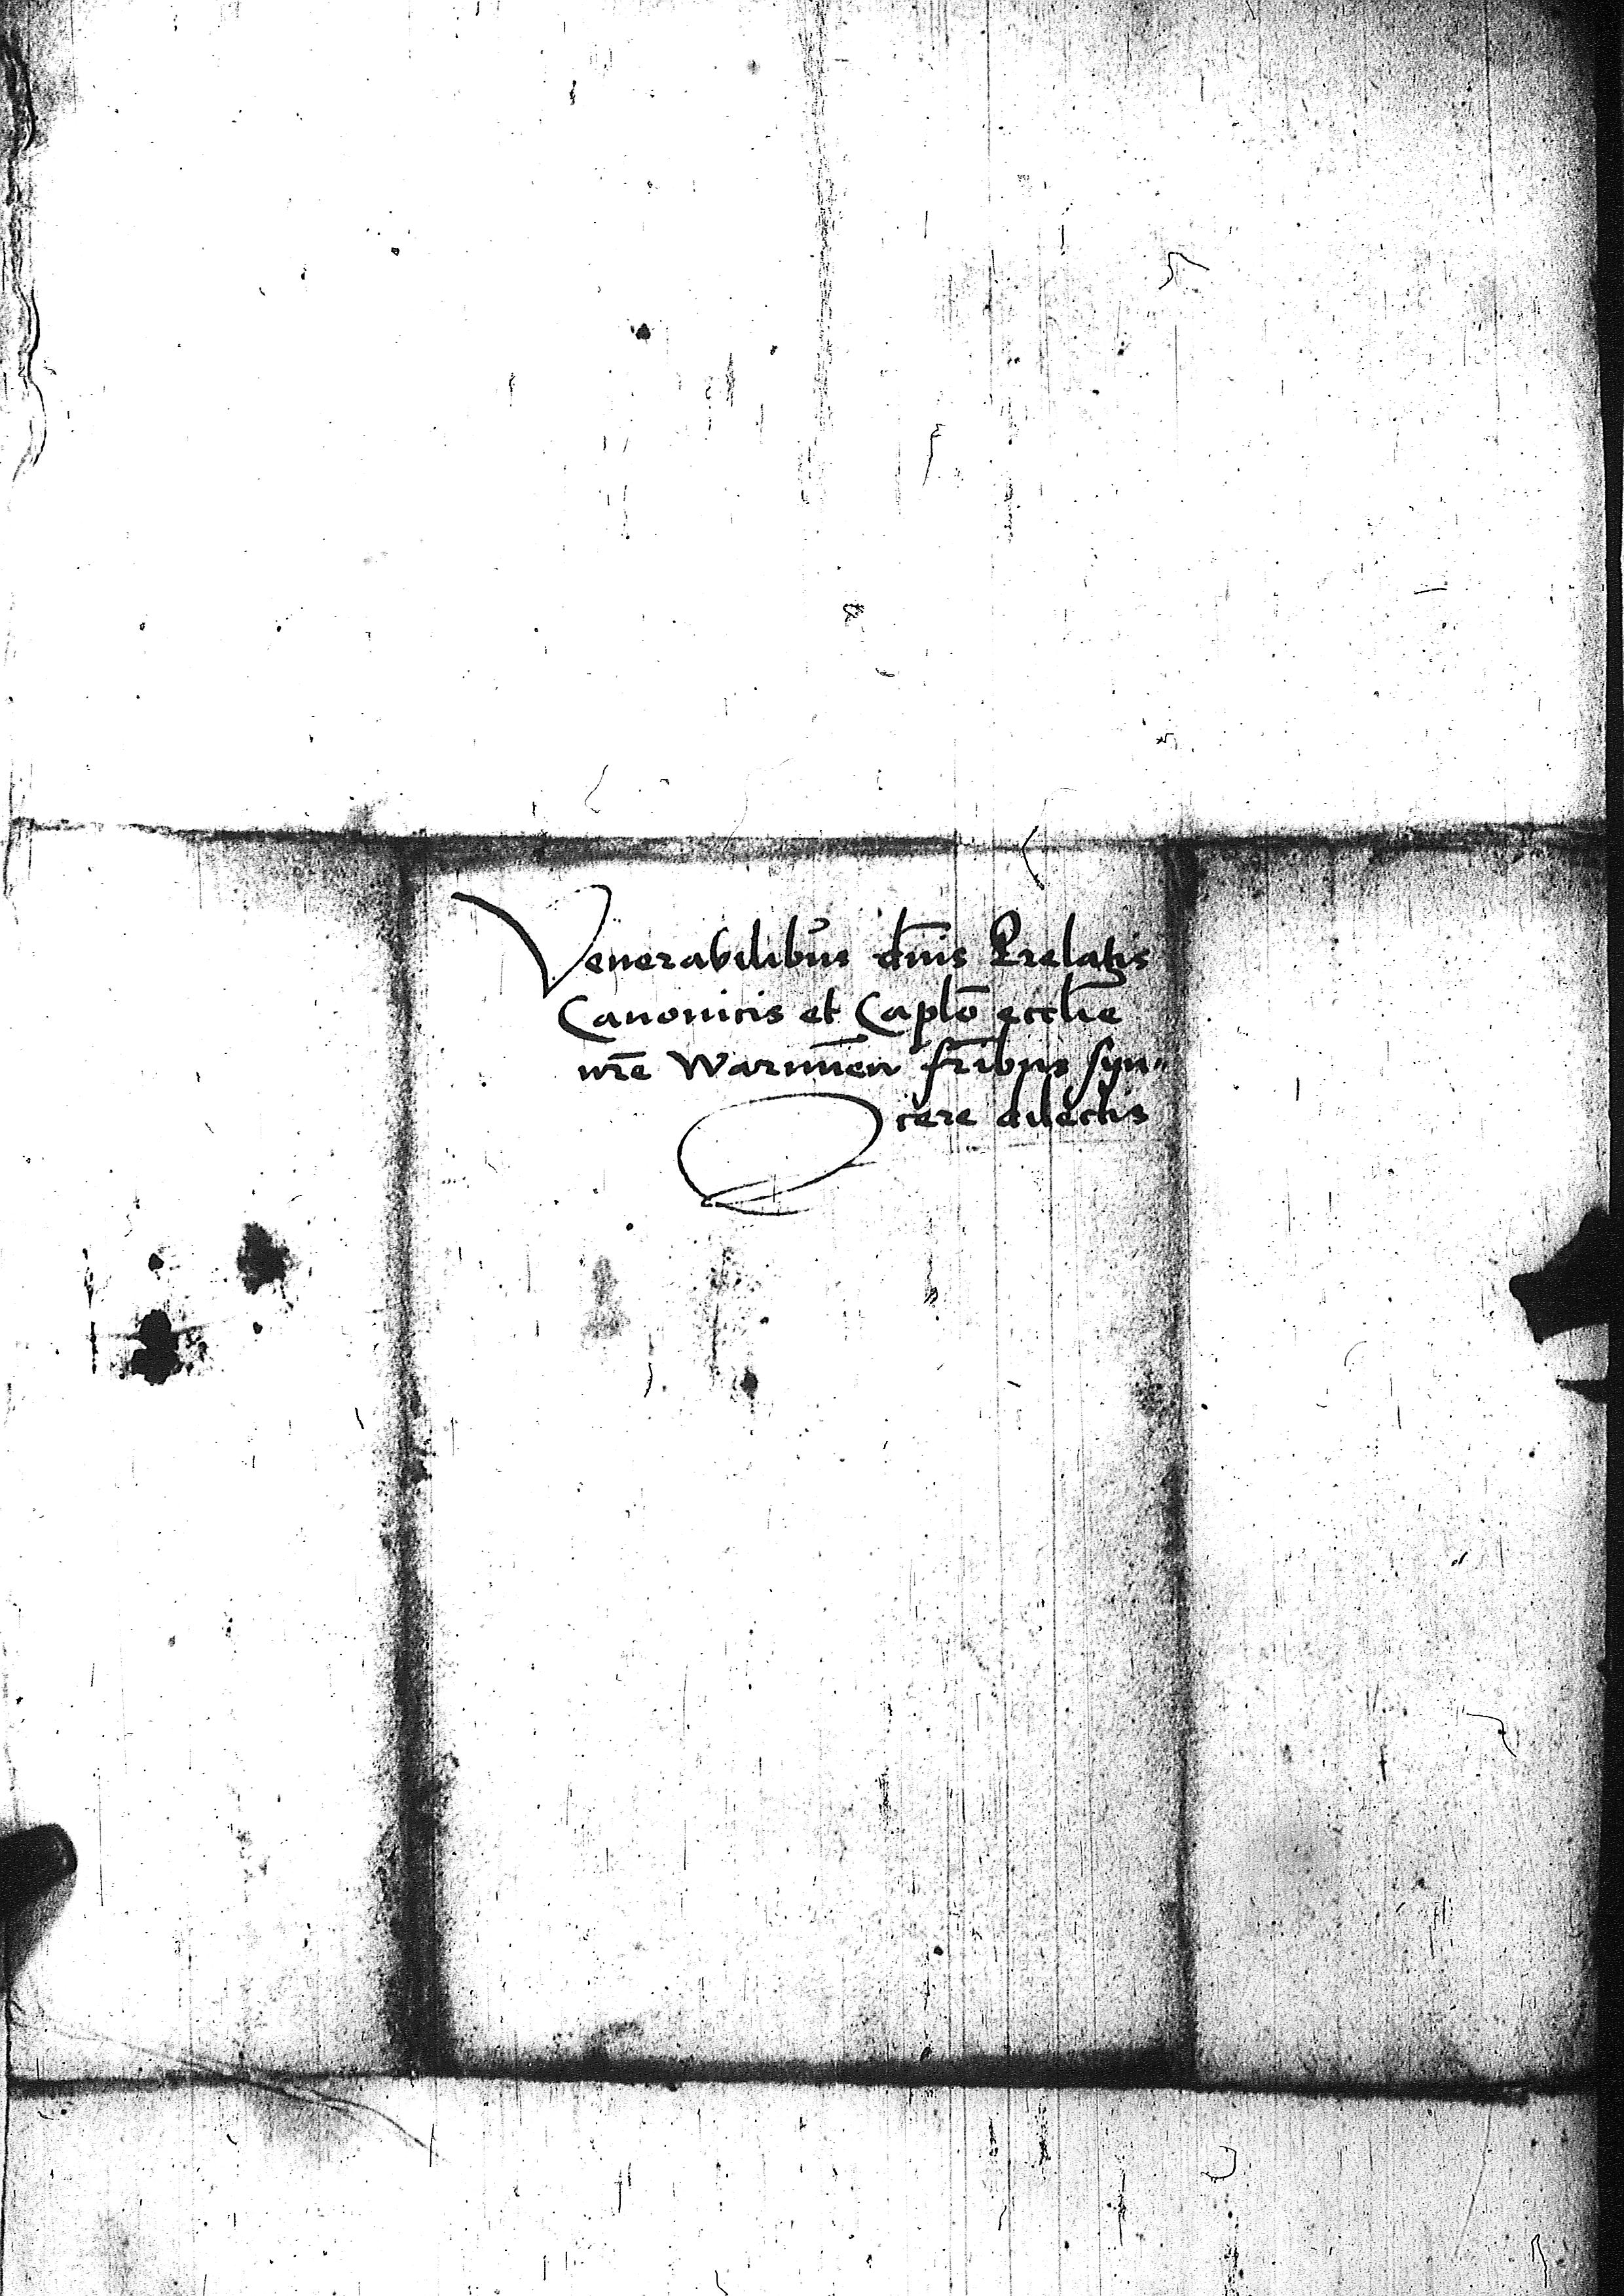 Venerabilibus dn̄is Prelatis
Canonicis et Caplō eccl̄ie
nr̄e Warmieñ fr̄ibus syn-
cere dilectis